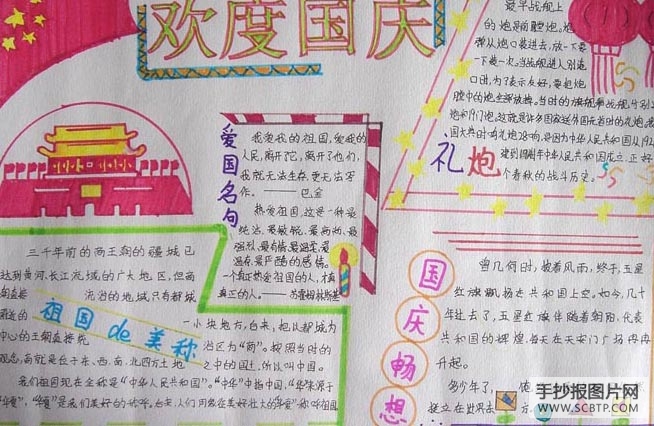 欢度国庆
最早战舰上
的炮是前膛炮。炮
弹从炮口装进去,放一下要
下装一次。当战舰进入别国
口时,为了表示友好,要把炮
膛中的炮全部放掉。当时的旗舰
炮和
国大热时鸣礼炮28响,是因为中华人民共和国从192
建到1949年中华人民共和国成立,正好
个春秋的战斗历史。
礼炮
爱国名句
我爱我的祖国,爱我的
人民,离开了它,离开了他们,
我就无法生存,更无法写
作。——巴金
热爱祖国,这是一种最
纯洁、最敏锐、最高尚、最
强烈、最有情、最温柔、最
温存、最严酷的感情。
一个真正热爱祖国的人,才真
真正的人。——苏霍姆林斯基
三千年前的商王朝的疆域已
达到黄河、长江流域的广大地区,但商
朝直接 统治的地域,只有都城
附近的 一小块地方,台来,把以都城为
祖国de美称
中心的王朝直接统 治区为“商”。按照当时的
观念,商就是位于东、西、南、北四方土地 之中的国土,所以叫中国。
我们祖国现在全称是“中华人民共和国”。“中华”中指中国,“华”来源于
“华夏”,“华夏”是我们美好的称呼。
国庆畅想
曾几何时,披着风雨,终于,五星
红旗飘扬在共和国上空。如今,几十
年过去了,五星红旗伴随着朝阳,代表
共和国的辉煌,每天在天安门广场冉冉
升起。
多少年了,
挺立在世界
手抄报图片网
WWW.SCBTP.COM